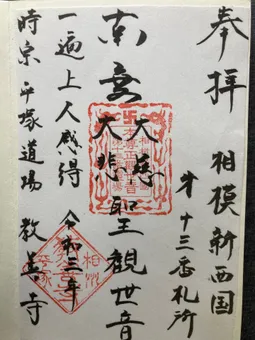 奉拝
相模新西国
第十三番札所
南無
大慈
大悲
聖観世音
一遍上人感得
令和三年
時宗平塚道場 教善寺
相州
平塚